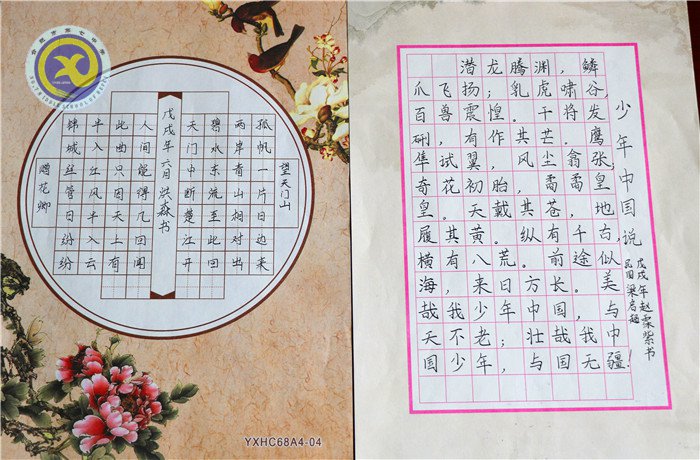 合肥市第七中学
赠花卿
锦城丝管日纷纷
半入江风半入云
此曲只因天上有
人间能得几回闻
戊戌年六月洪森书
天门中断楚江开
碧水东流至此回
两岸青山相对出
孤帆一片日边来
望天门山
YXHC68A4-04
潜龙腾渊，鳞
爪飞扬；乳虎啸谷，
百兽震惶。干将发
硎，有作其芒。鹰
隼试翼，风尘翕张。
奇花初胎，矞矞皇
皇。天戴其苍，地
履其黄。纵有千古，
横有八荒。前途似
海，来日方长。美
哉我少年中国，与
天不老；壮哉我中
国少年，与国无疆！
少年中国说
民国 梁启超
戊戌年赵霖紫书